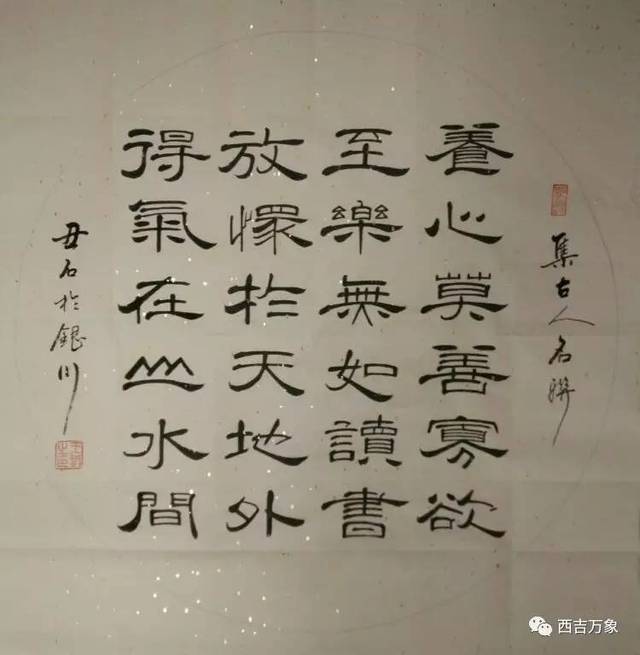 集古人名聯
養心莫善寡欲
至樂無如讀書
放懷於天地外
得氣在山水間
毋石於銀川
西吉万象